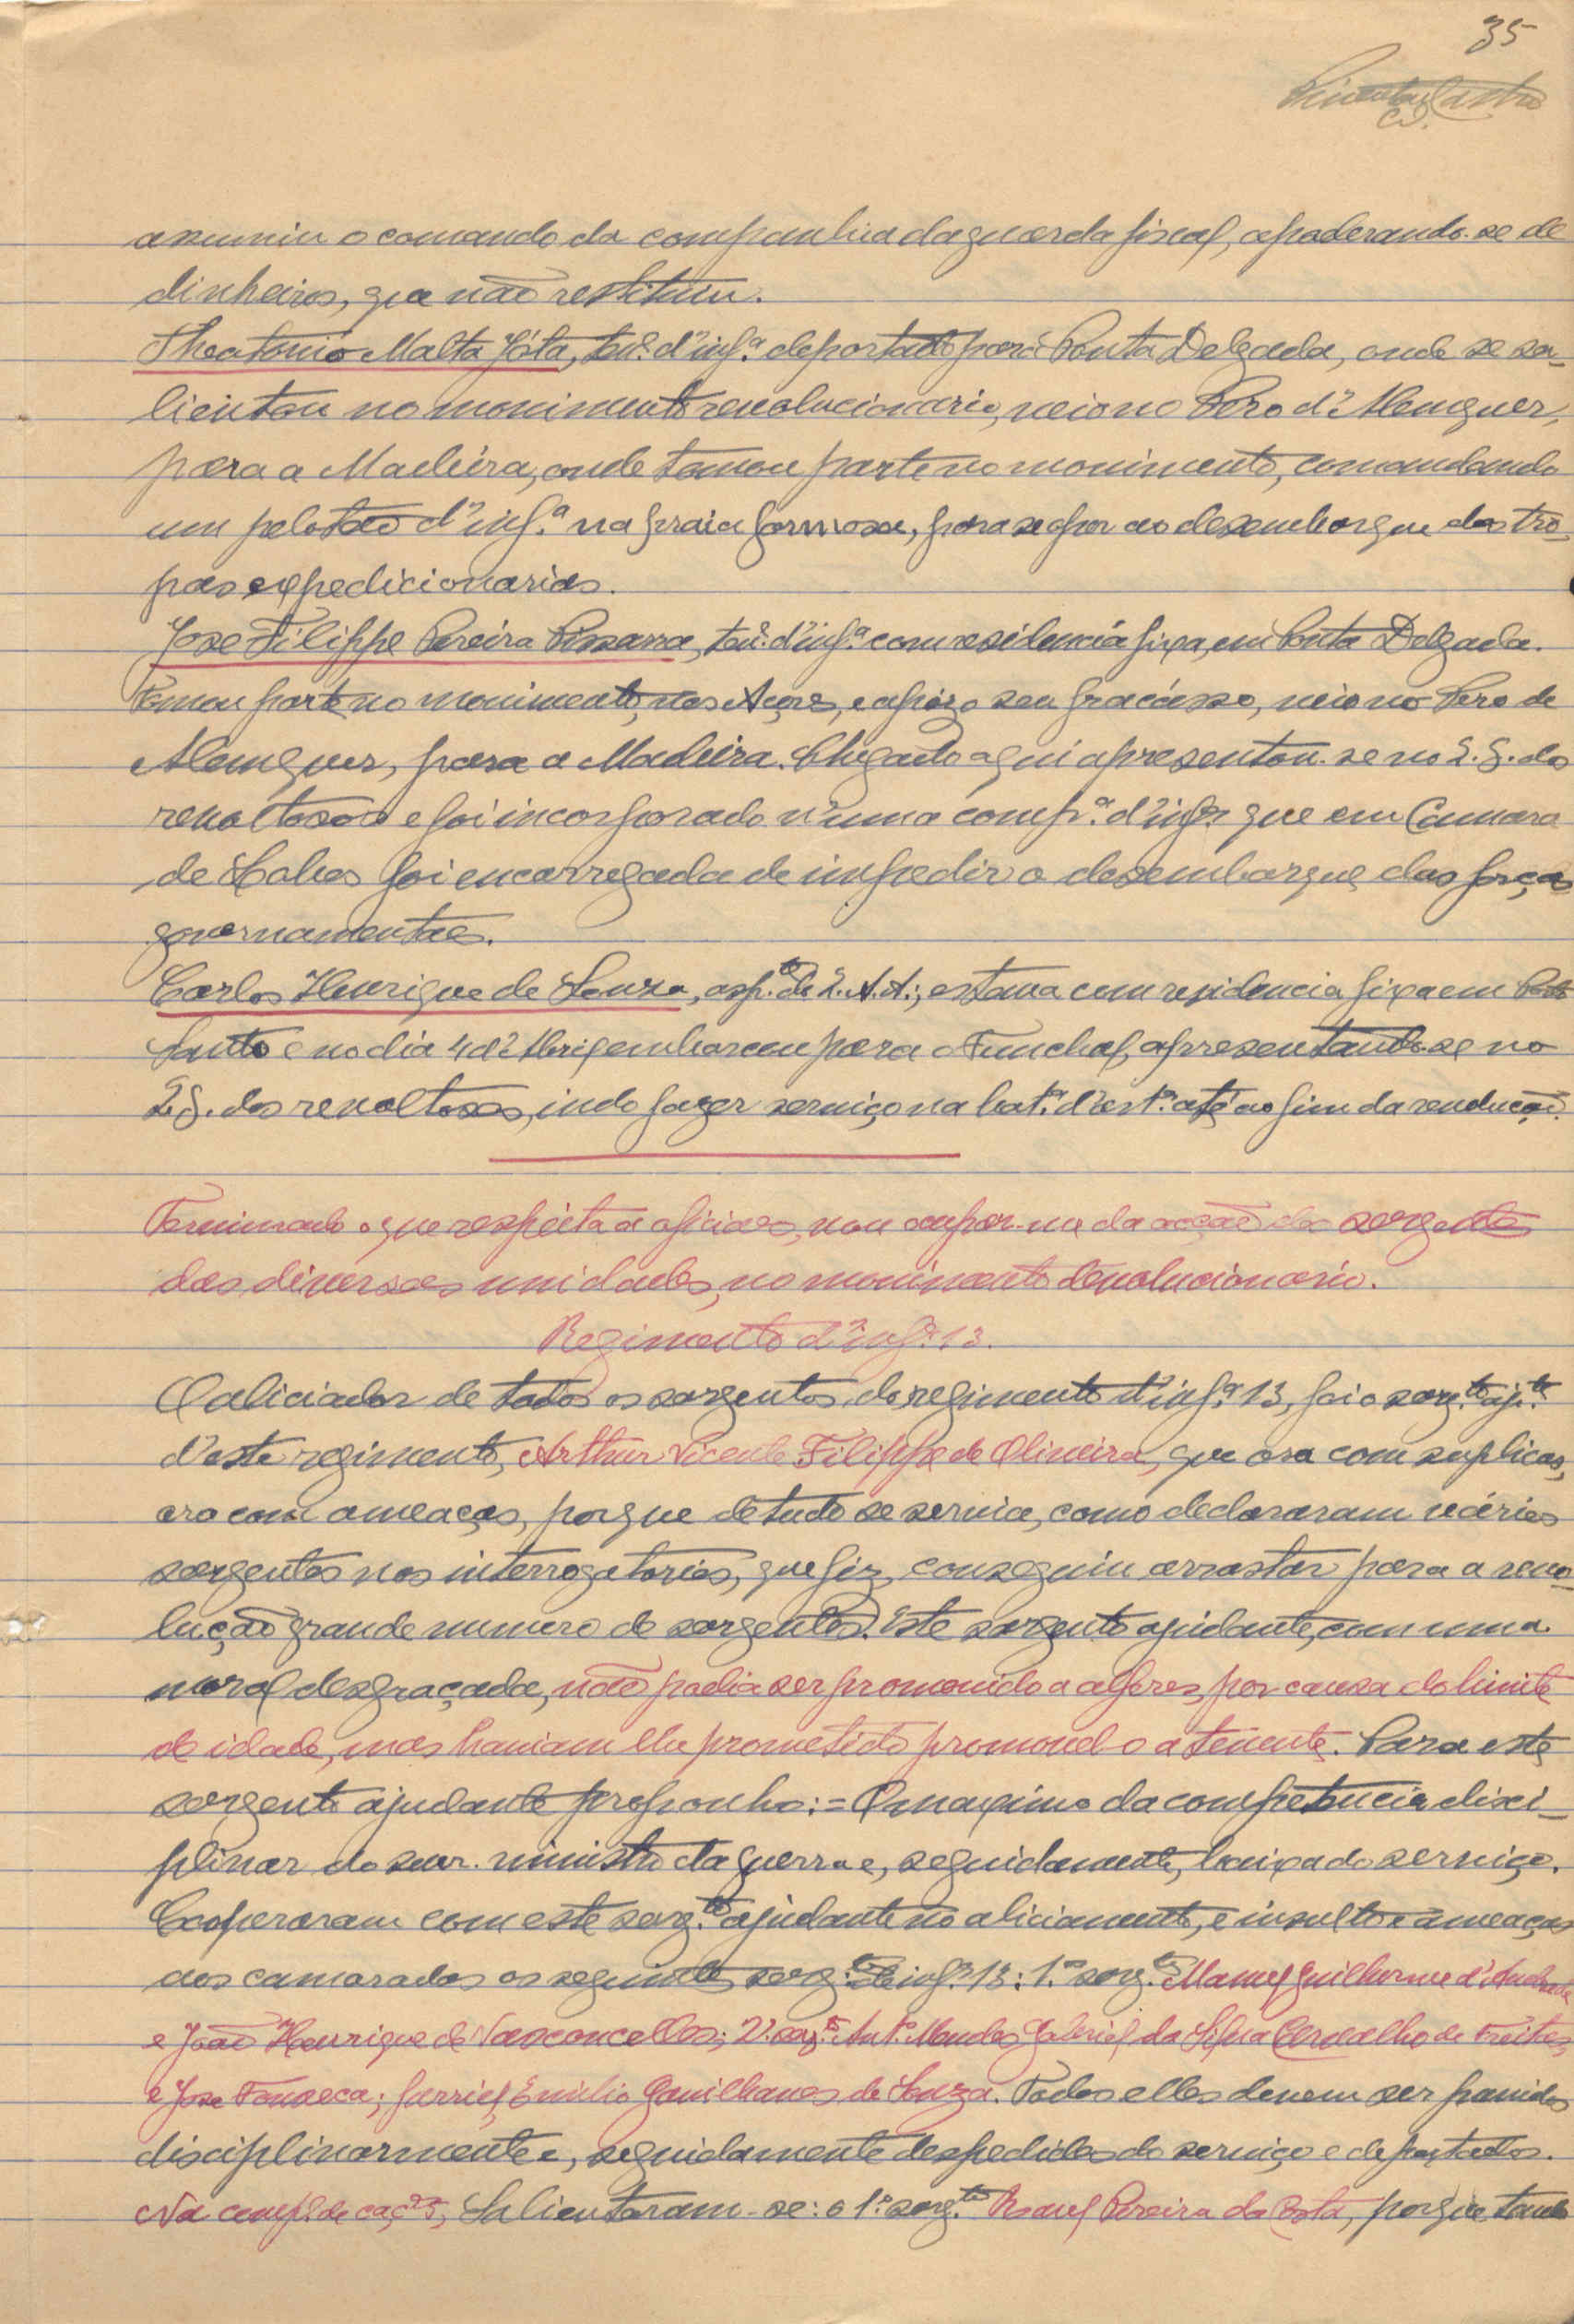 35
Pimenta de Castro
assumiu o comando da companhia da guarda fiscal, apoderando-se de
dinheiros, que não restituiu.
Theotonio Malta Jóta, tenᵉ. d'infᵃ. deportado para Ponta Delgada, onde se sa-
lientou no movimento revolucionario, veio no Pero d'Alemquer,
para a Madeira, onde tomou parte no movimento, comandando
um pelotão d'inf.ᵃ na praia formosa, para se opor ao desembarque das tro-
pas expedicionarias.
José Filippe Pereira Pissarra, tenᵉ. d'infᵃ. com residencia fixa, em Ponta Delgada.
Tomou parte no movimento, nos Açores, e após o seu fracásso, veio no Pero de
Alemquer, para a Madeira. Chegado aqui apresentou-se no Q.G. dos
revoltosos e foi incorporado n'uma comp.ᵃ d'infᵃ que em Camara
de Lobos foi encarregada de impedir o desembarque das forças
governamentaes.
Carlos Henrique de Souza, asp.ᵗᵉ de Q.A.A.; estava com residencia fixa em Porto
Santo e no dia 4 d'Abril embarcou para o Funchal, apresentando-se no
Q.G. dos revoltosos, indo fazer serviço na bat.ᵃ d'art.ᵃ até ao fim da rendução.
Terminado o que respeita a oficiaes, vou ocupar-me da acção dos sargentos
das diversas unidades, no movimento revolucionario.
Regimento d'infᵃ. 13.
O aliciador de todos os sargentos do regimento d'infᵃ. 13, foi o sarg.ᵗᵒ ajᵗᵉ.
d'este regimento, Arthur Vicente Filippe de Oliveira, que ora com suplicas,
ora com ameaças, porque de tudo se servia, como declararam vários
sargentos nos interrogatorios, que fiz, conseguiu arrastar para a revo-
lução grande numero de sargentos. Este sargento ajudante, com uma
moral desgraçada, não podia ser promovido a alferes, por causa do limite
de idade, mas haviam-lhe prometido promovel-o a tenente. Para este
sargento ajudante proponho:= O maximo da competencia disci-
plinar do snr. ministro da guerra e, seguidamente, baixa do serviço.
Cooperaram com este sarg.ᵗᵒ ajudante no aliciamento, e insulto e ameaças
aos camaradas os seguintes sarg.ᵗᵒˢ de infᵃ. 13: 1.ᵒˢ sarg.ᵗᵒˢ Manuel Guilherme d'Andrade
e João Henrique de Vasconcellos; 2ᵒˢ. sarg.ᵗᵒˢ Ant.ᵒ Mendes, Gabriel da Silva Carvalho de Freitas,
e José Fonseca; furriel, Emilio Ganilhanes de Souza. Todos elles devem ser punidos
disciplinarmente e, seguidamente despedidos do serviço e deportados.
Na comp.ᵃ de caç.ᵉˢ 5, salientaram-se: o 1.º sarg.ᵗᵒ Raul Pereira da Costa, porque tendo